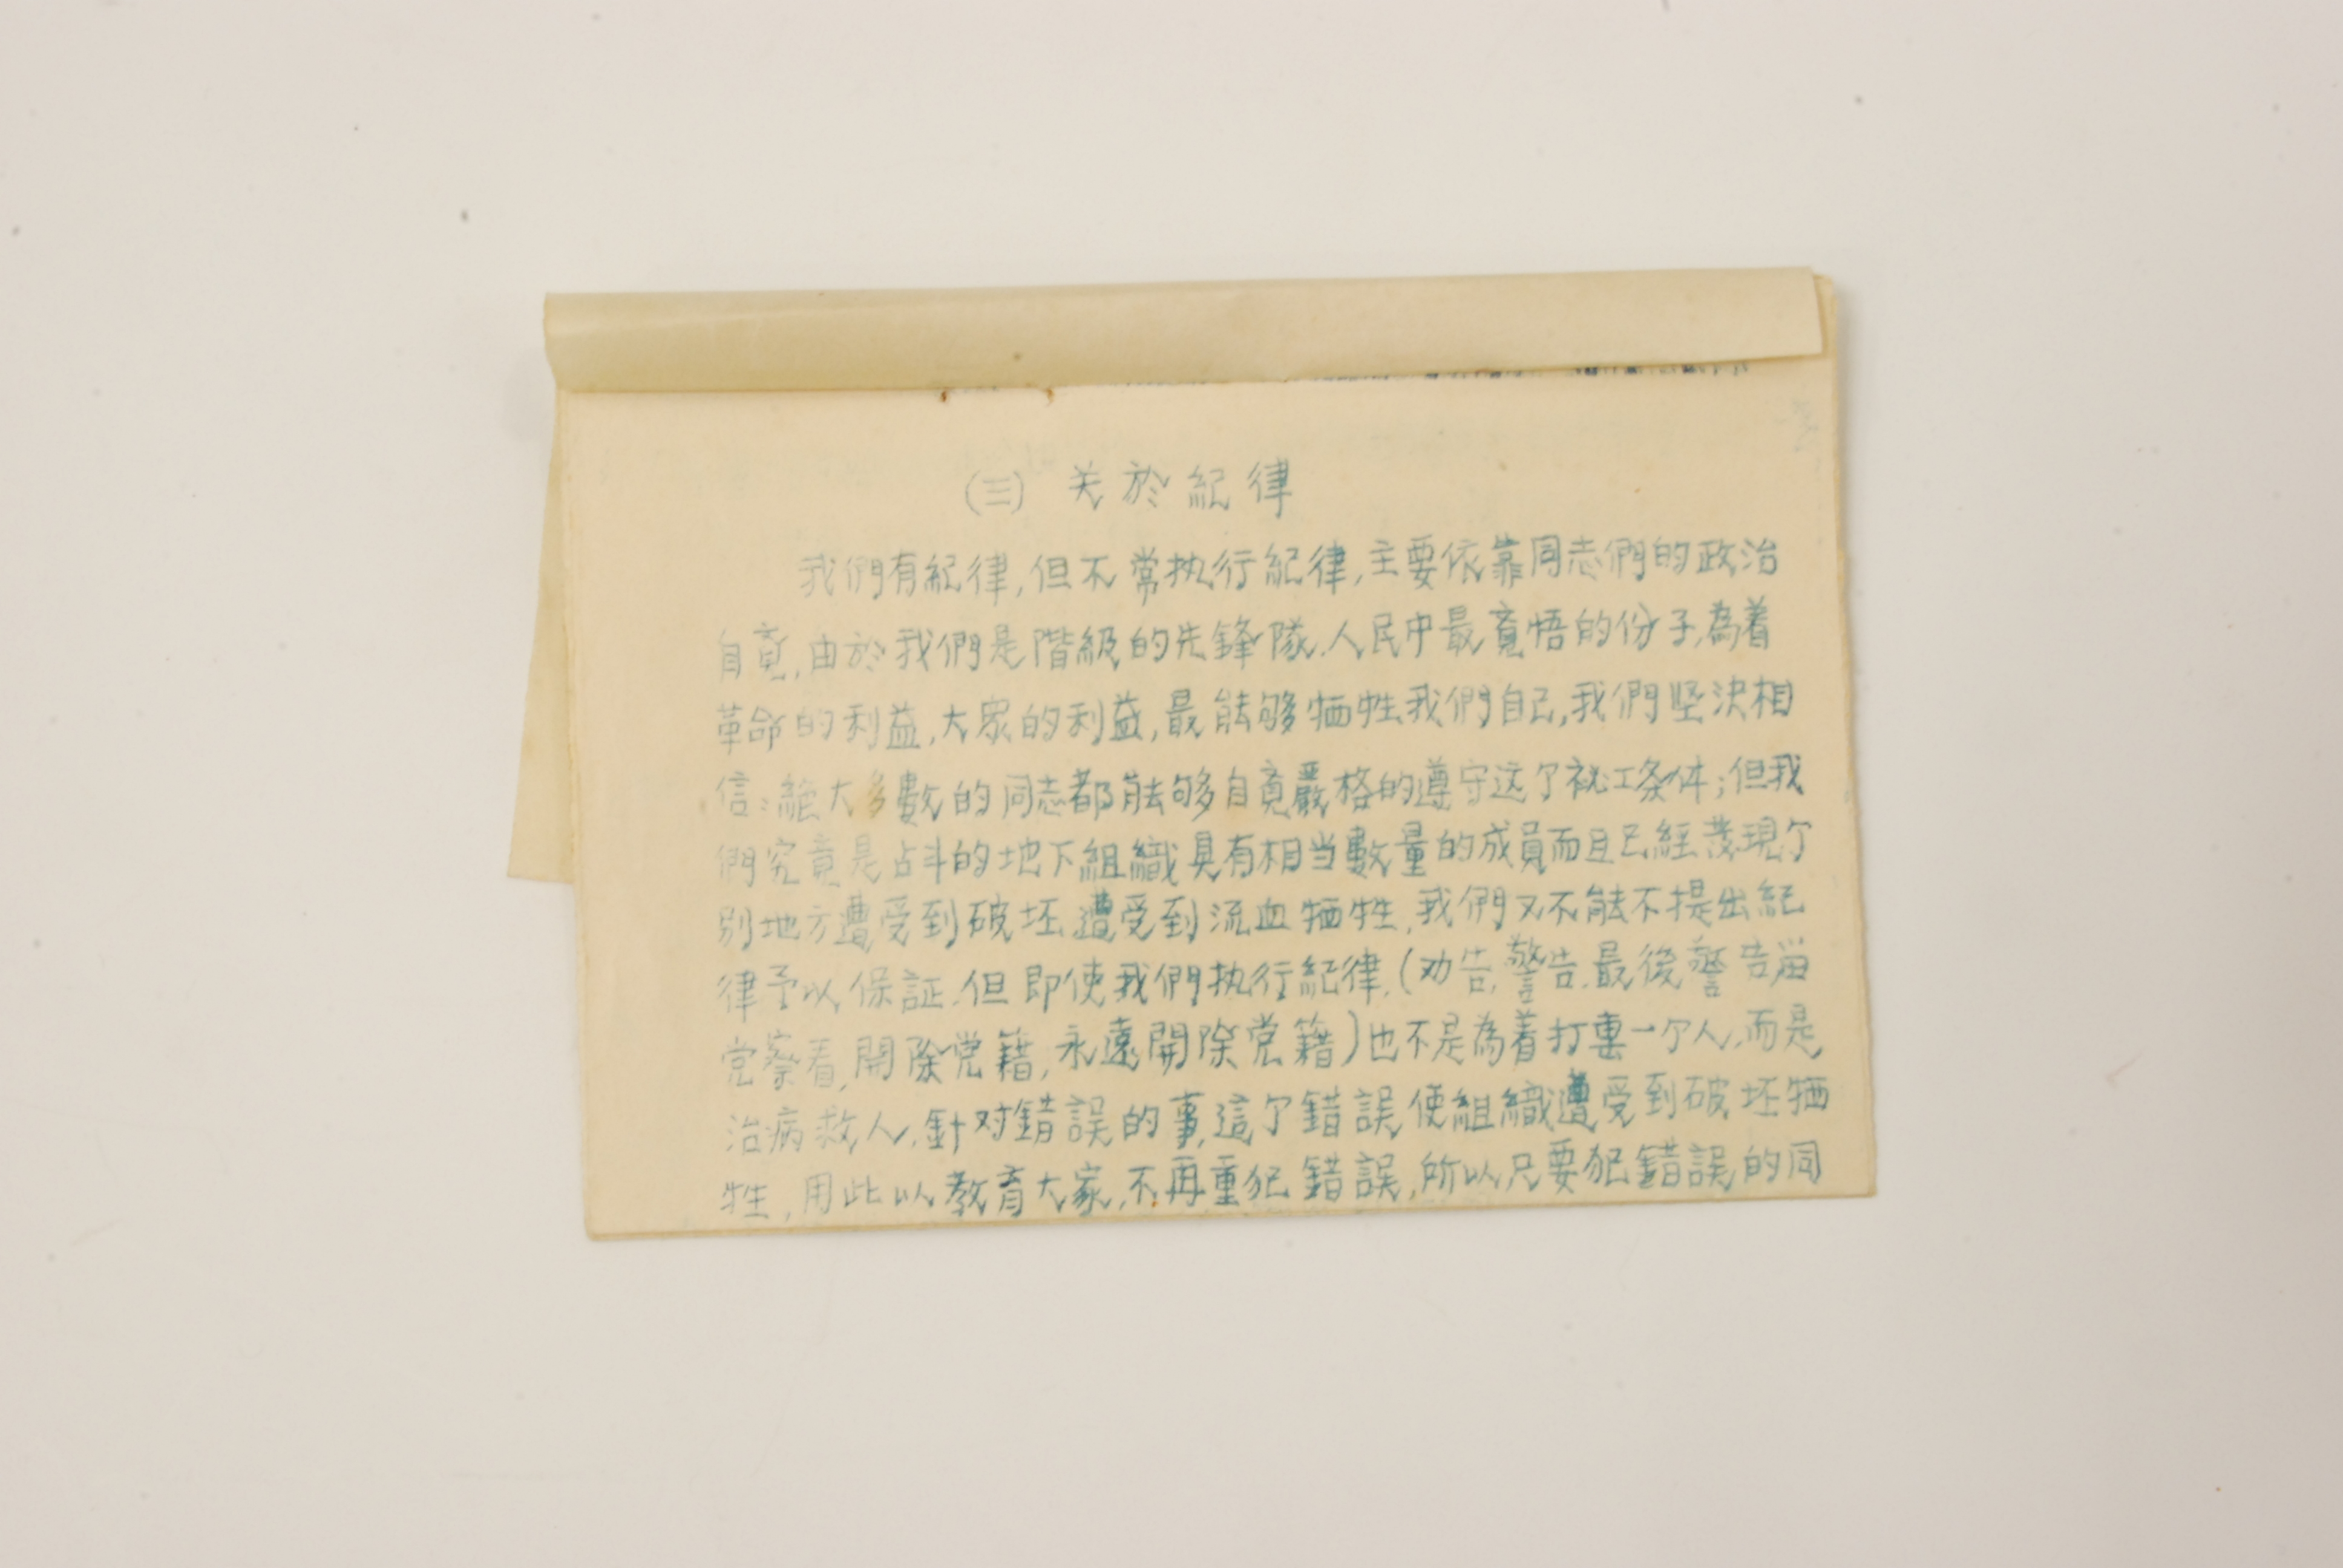 (三) 关於紀律
我們有紀律,但不常执行紀律,主要依靠同志們的政治
自覚,由於我們是階級的先鋒隊.人民中最覚悟的份子,為着
革命的利益,大眾的利益,最能够牺牲我們自己,我們坚決相
信:絕大多數的同志都能够自覚嚴格的遵守这个祕工条件;但我
們究竟是占斗的地下組織具有相当數量的成員而且已經发現个
別地方遭受到破坯遭受到流血牺牲,我們又不能不提出紀
律予以保証.但即使我們执行紀律.(劝告,警告.最後警告畄
党察看,開除党籍,永遠開除党籍)也不是為着打一个人,而是
治病救人,針对錯誤的事,這个錯誤使組織遭受到破坯牺
牲,用此以教育大家,不再重犯錯誤,所以只要犯錯誤的同